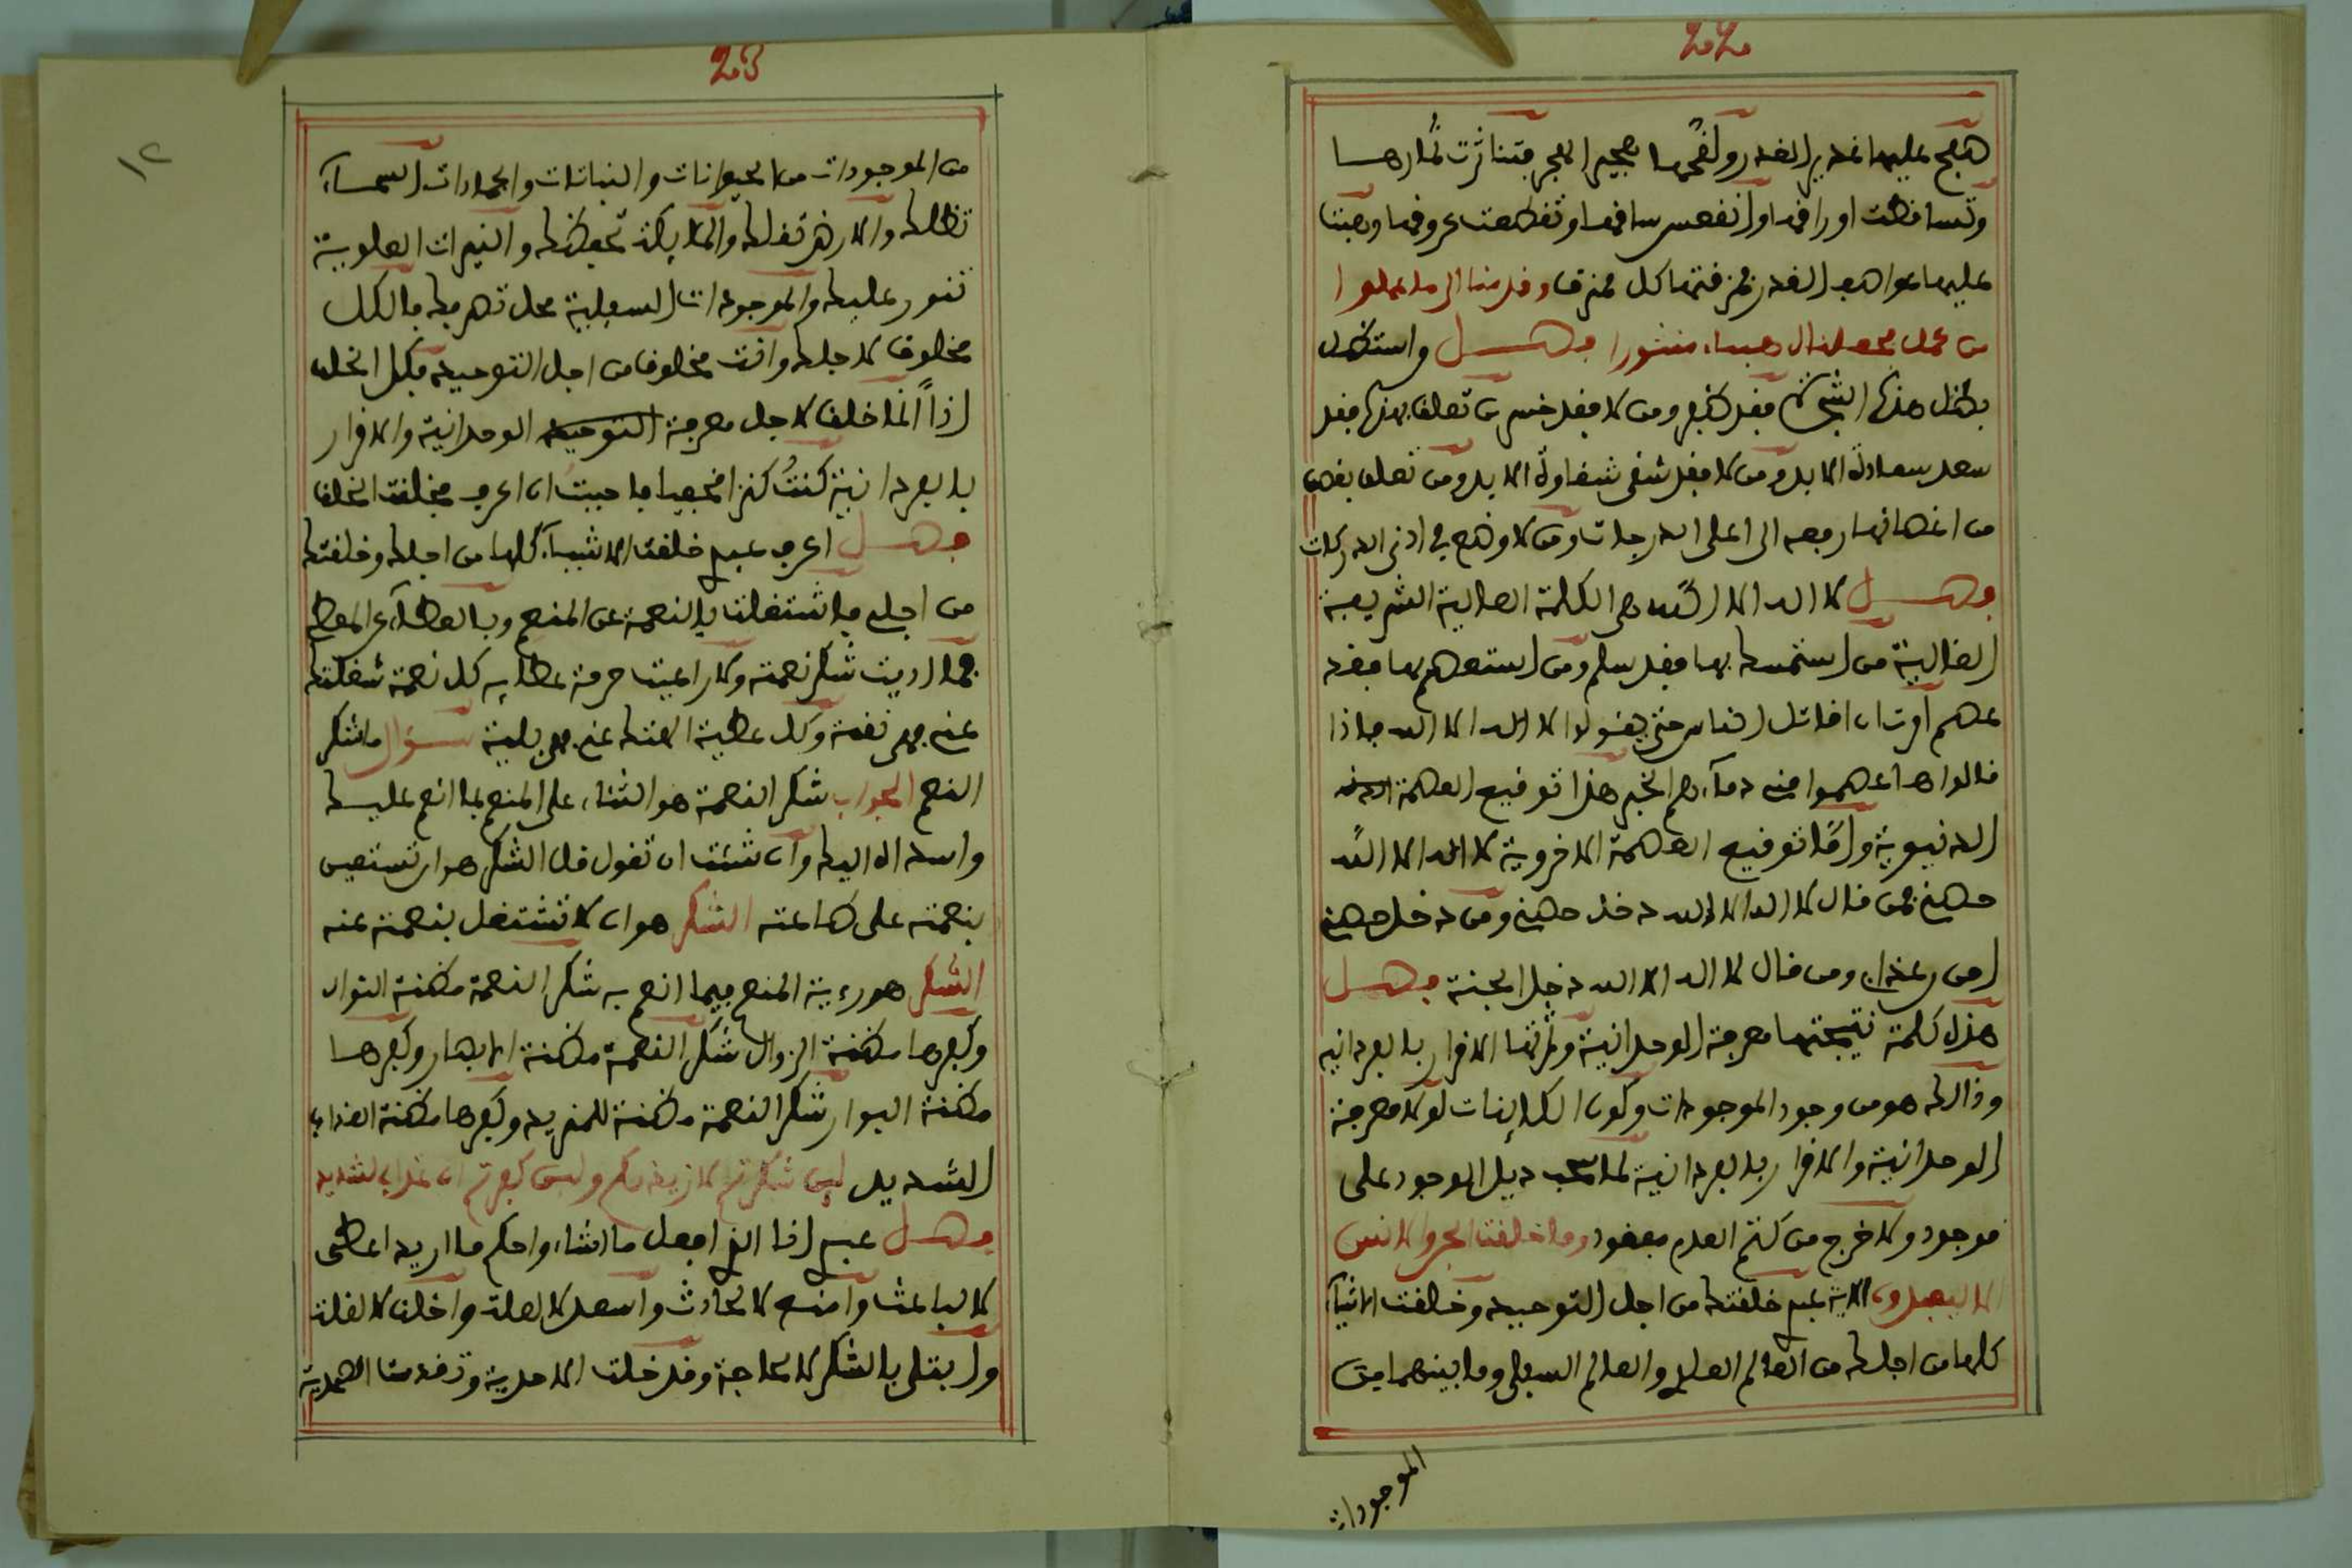 22
هيج عليها غدير الغدر ولفحها هجير الهجر فتناثرت ثمارها
وتساقطت اوراقها وانفصس ساقها وتقطعت عروقها وهبت
عليها عواصف القدر فمزقتها كل ممزق وقدمنا الى ما عملوا
من عمل فجعلناه هباء منثورا فصل واستظل
بظل هذه الشجرة فقد ظفر ومن لا فقد خسر من تعلق بهذه فقد
سعد سعادة الابد ومن لا فقد شقى شقاوة الابد ومن تعلق بغصن
من اغصانها رفعه الى اعلى الدرجات ومن لا وضع في ادنى الدركات
فصل لا اله الا الله هى الكلمة العالية الشريفة
الغالية من استمسك بها فقد سلم ومن استعصم بها فقد
عصم امرت ان اقاتل الناس حتى يقولوا لا اله الا الله فاذا
قالوها عصموا منى دمآءهم الخبر هذا توقيع العصمة
الدنيوية وامّا توقيع العصمة الاخروية لا اله الا الله
حصنى فمن قال لا اله الا الله دخل حصنى ومن دخل حصنى
امن عذابى ومن قال لا اله الا الله دخل الجنة فصل
هذه كلمة نتيجتها معرفة الوحدانية وثمرتها الاقرار بالفردانيه
وذالك هو من وجود الموجودات وكون الكاينات لولا معرفة
الوحدانية والاقرار بالفردانية لما سحب ذيل الوجود على
موجود ولا خرج من كتم العدم مفقود وما خلقت الجن والانس
الا ليعبدون الاية عبدى خلقتك من اجل التوحيد وخلقت الاشيآء
كلها من اجلك من العالم العلوى والعالم السفلى وما بينهما من
الموجودات
23
١٢
من الموجودات من الحيوانات والنباتات والجمادات السمآء
تظلك والارض تقلك والملايكة تحفظك والنيرات العلوية
تنور عليك والموجودات السفلية محل تصرفك فالكل
مخلوق لاجلك وانت مخلوق من اجل التوحيد فكل الخلق
اذاً انما خلق لاجل معرفة التوحيد الوحدانية والاقرار
بالفردانية كنتُ كنزا مخفيا فاحببتُ ان اعرف فخلقت الخلق
فصل اعرف عبدى خلقت الاشيآء كلها من اجلك وخلقتك
من اجلى فاشتغلت بالنعمة عن المنعم وبالعطآء عن المعطى
فما اديت شكر نعمته ولا راعيت حرمة عطايه كل نعمة شغلتك
عنى فهى نقمة وكل عطية الهتك عنى فهى بلية سؤال ما شكر
النعم الجواب شكر النعمة هو الثناء على المنعم بما انعم عليك
واسداه اليك وان شئت ان تقول قل الشكر هو ان تستعين
بنعمته على طاعته الشكر هو ان لا تشتغل بنعمة عنه
الشكر هو رءية المنعم فيما انعم به شكر النعمة مظنة النوال
وكفرها مظنة الزوال شكر النعمة مظنة الابصار وكفرها
مظنة البوار شكر النعمة مظنة للمزيد وكفرها مظنة العذاب
الشديد لين شكرتم لازيدنكم ولين كفرتم ان عذابى لشديد
فصل عبدى انا الذى افعل ما اشاء واحكم ما اريد اعطى
لا لباعث وامنع لا لحادث واسعد لا لعلة واخلق لا لقلة
وابتلى بالشكر لا لحاجة وقد خلت الاحدية وتقدست الصمدية